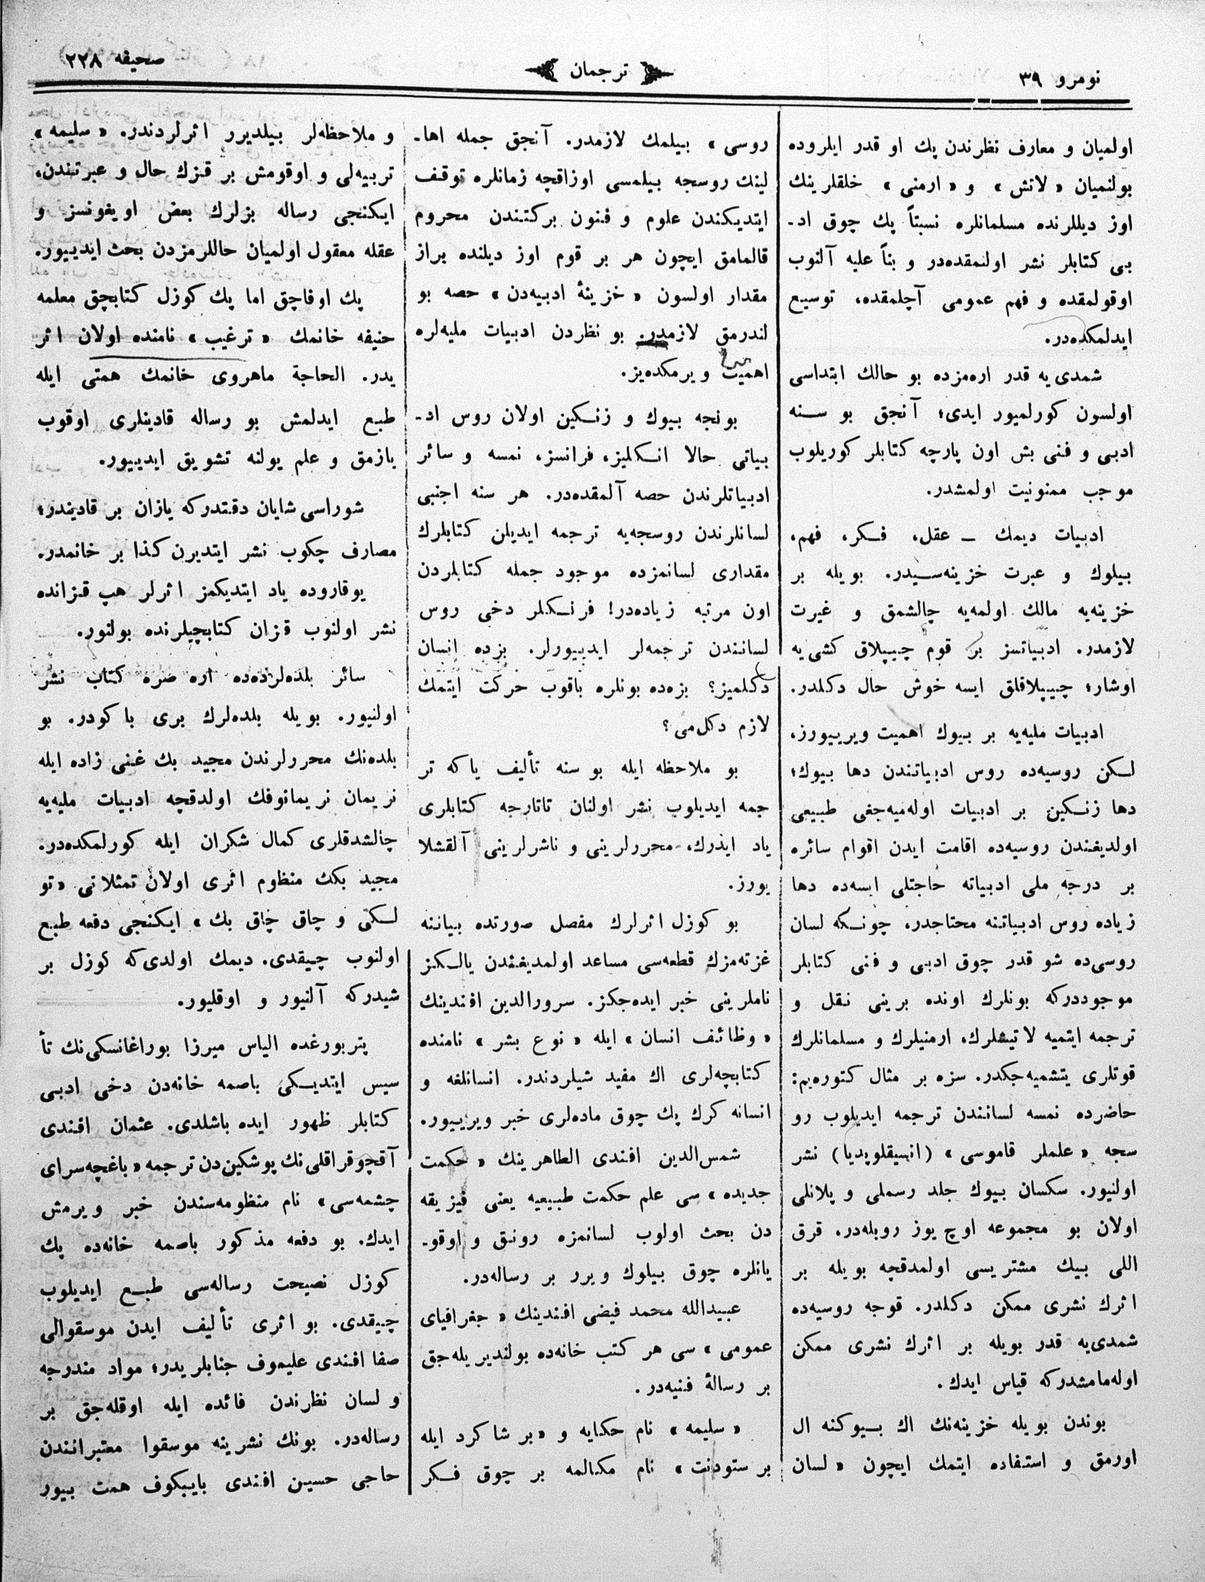 نومرو ٣٩
ترجمان
صحیفه ٢٢٨
اولمیان و معارف نظرندن پك او قدر ایلروده
بولنمیان «لاتش» و «ارمنی» خلقلرینك
اوز دیللرنده مسلمانلره نسبتاً پك چوق اد-
بی کتابلر نشر اولنمقده‌در و بناً علیه آلنوب
اوقولمقده و فهم عمومی آچلمقده، توسیع
ایدلمکده‌در.
شمدی‌یه قدر اره‌مزده بو حالك ابتداسی
اولسون کورلمیور ایدی؛ آنجق بو سنه
ادبی و فنی بش اون پارچه کتابلر کوریلوب
موجب ممنونیت اولمشدر.
ادبیات دیمك — عقل، فکر، فهم،
بیلوك و عبرت خزینه‌سیدر. بویله بر
خزینه‌یه مالك اولمه‌یه چالشمق و غیرت
لازمدر. ادبیاتسز بر قوم چیپلاق کشی‌یه
اوشار؛ چیپلاقلق ایسه خوش حال دکلدر.
ادبیات ملیه‌یه بر بیوك اهمیت ویرییورز،
لکن روسیه‌ده روس ادبیاتندن دها بیوك؛
دها زنکین بر ادبیات اوله‌میه‌جغی طبیعی
اولدیغندن روسیه‌ده اقامت ایدن اقوام سائره
بر درجه ملی ادبیاته حاجتلی ایسه‌ده دها
زیاده روس ادبیاتنه محتاجدر، چونکه لسان
روسی‌ده شو قدر چوق ادبی و فنی کتابلر
موجوددرکه بونلرك اونده برینی نقل و
ترجمه ایتمیه لاتیشلرك، ارمنیلرك و مسلمانلرك
قوتلری یتشمیه‌جکدر. سزه بر مثال کتوره‌یم:
حاضرده نمسه لسانندن ترجمه ایدیلوب رو
سجه «علملر قاموسی» (انسیقلوپدیا) نشر
اولنیور. سکسان بیوك جلد رسملی و پلانلی
اولان بو مجموعه اوچ یوز روبله‌در. قرق
اللی بیك مشتریسی اولمدقچه بویله بر
اثرك نشری ممکن دکلدر. قوجه روسیه‌ده
شمدی‌یه قدر بویله بر اثرك نشری ممکن
اوله‌مامشدرکه قیاس ایدك.
بوندن بویله خزینه‌نك اك بیوکنه ال
اورمق و استفاده ایتمك ایچون «لسان
روسی» بیلمك لازمدر. آنجق جمله اها-
لینك روسجه بیلمسی اوزاقچه زمانلره توقف
ایتدیکندن علوم و فنون برکتندن محروم
قالمامق ایچون هر بر قوم اوز دیلنده براز
مقدار اولسون «خزینهٔ ادبیه‌دن» حصه بو
لندرمق لازمدر. بو نظردن ادبیات ملیه‌لره
اهمیت ویرمکده‌یز.
بونجه بیوك و زنکین اولان روس اد-
بیاتی حالا انکلیز، فرانسز، نمسه و سائر
ادبیاتلرندن حصه آلمقده‌در. هر سنه اجنبی
لسانلرندن روسجه‌یه ترجمه ایدیلن کتابلرك
مقداری لسانمزده موجود جمله کتابلردن
اون مرتبه زیاده‌در! فرنکلر دخی روس
لسانندن ترجمه‌لر ایدییورلر. بزده انسان
دکلمیز؟ بزه‌ده بونلره باقوب حرکت ایتمك
لازم دکل‌می؟
بو ملاحظه ایله بو سنه تألیف یاکه تر
جمه ایدیلوب نشر اولنان تاتارجه کتابلری
یاد ایدرك، محررلرینی و ناشرلرینی آلقشلا
یورز.
بو کوزل اثرلرك مفصل صورتده بیاننه
غزته‌مزك قطعه‌سی مساعد اولمدیغندن یالکز
ناملرینی خبر ایده‌جکز. سرورالدین افندینك
«وظائف انسان» ایله «نوع بشر» نامنده
کتابچه‌لری اك مفید شیلردندر. انسانلغه و
انسانه کرك پك چوق ماده‌لری خبر ویرییور.
شمس‌الدین افندی الطاهرینك «حکمت
جدیده» سی علم حکمت طبیعیه یعنی فیزیقه
دن بحث اولوب لسانمزه رونق و اوقو-
یانلره چوق بیلوك ویرر بر رساله‌در.
عبیدالله محمد فیضی افندینك «جغرافیای
عمومی» سی هر کتب خانه‌ده بولندیریله‌جق
بر رسالهٔ فنیه‌در.
«سلیمه» نام حکایه و «بر شاکرد ایله
بر ستودنت» نام مکالمه بر چوق فکر
و ملاحظه‌لر بیلدیرر اثرلردندر. «سلیمه»
تربیه‌لی و اوقومش بر قزك حال و عبرتندن،
ایکنجی رساله بزلرك بعض اویغونسز و
عقله معقول اولمیان حاللرمزدن بحث ایدییور.
پك اوفاچق اما پك کوزل کتابچق معلمه
حنیفه خانمك «ترغیب» نامنده اولان اثر
یدر. الحاجة ماهروی خانمك همتی ایله
طبع ایدلمش بو رساله قادینلری اوقوب
یازمق و علم یولنه تشویق ایدییور.
شوراسی شایان دقتدرکه یازان بر قادیندر؛
مصارف چکوب نشر ایتدیرن کذا بر خانمدر.
یوقاروده یاد ایتدیکمز اثرلر هپ قزانده
نشر اولنوب قزان کتابچیلرنده بولنور.
سائر بلده‌لرده‌ده اره صره کتاب نشر
اولنیور. بویله بلده‌لرك بری باکودر. بو
بلده‌نك محررلرندن مجید بك غنی زاده ایله
نریمان نریمانوفك اولدقچه ادبیات ملیه‌یه
چالشدقلری کمال شکران ایله کورلمکده‌در.
مجید بکك منظوم اثری اولان تمثلاتی «تو
لکی و چاق چاق بك» ایکنجی دفعه طبع
اولنوب چیقدی. دیمك اولدی‌که کوزل بر
شیدرکه آلنیور و اوقلیور.
پتربورغده الیاس میرزا بوراغانسکی‌نك تأ
سیس ایتدیکی باصمه خانه‌دن دخی ادبی
کتابلر ظهور ایده باشلدی. عثمان افندی
آقچوقراقلی‌نك پوشکین‌دن ترجمه «باغچه‌سرای
چشمه‌سی» نام منظومه‌سندن خبر ویرمش
ایدك. بو دفعه مذکور باصمه خانه‌ده پك
کوزل نصیحت رساله‌سی طبع ایدیلوب
چیقدی. بو اثری تألیف ایدن موسقوالی
صفا افندی علیموف جنابلریدر؛ مواد مندرجه
و لسان نظرندن فائده ایله اوقله‌جق بر
رساله‌در. بونك نشرینه موسقوا معتبرانندن
حاجی حسین افندی بایبکوف همت بیور